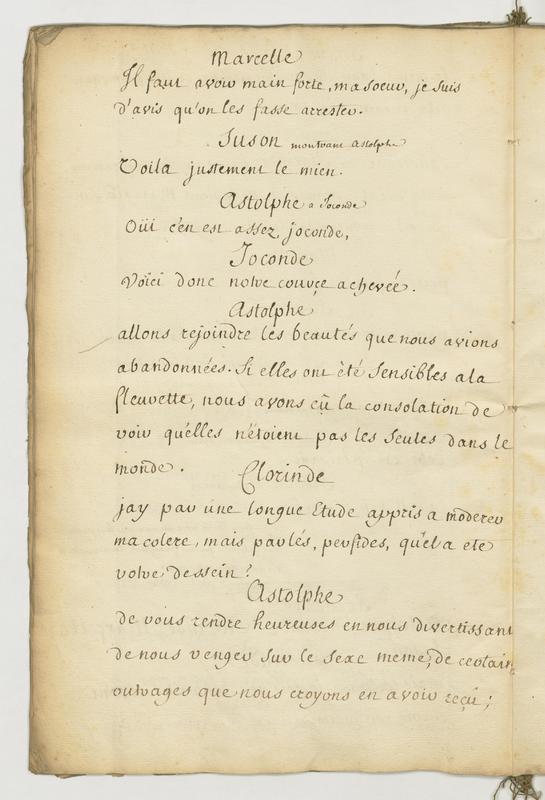 Marcelle
Il faut avoir main forte, ma soeur, je suis
d'avis qu'on les fasse arrester.
Suson montrant astolphe
Voila justement le mien.
Astolphe a Joconde
Oüi c'en est assez, joconde,
Joconde
Voici donc notre course achevée.
Astolphe
allons rejoindre les beautés que nous avions
abandonnées. Si elles ont èté Sensibles a la
fleurette, nous avons eû la consolation de
voir qu'elles n'étoient pas les Seules dans le
monde.
Clorinde
jay par une longue Etude appris a moderer
ma colere, mais parlés, perfides, quel a ete
votre dessein?
Astolphe
de vous rendre heureuses en nous divertissant
de nous venger sur le sexe meme, de certains
outrages que nous croyons en avoir reçû;